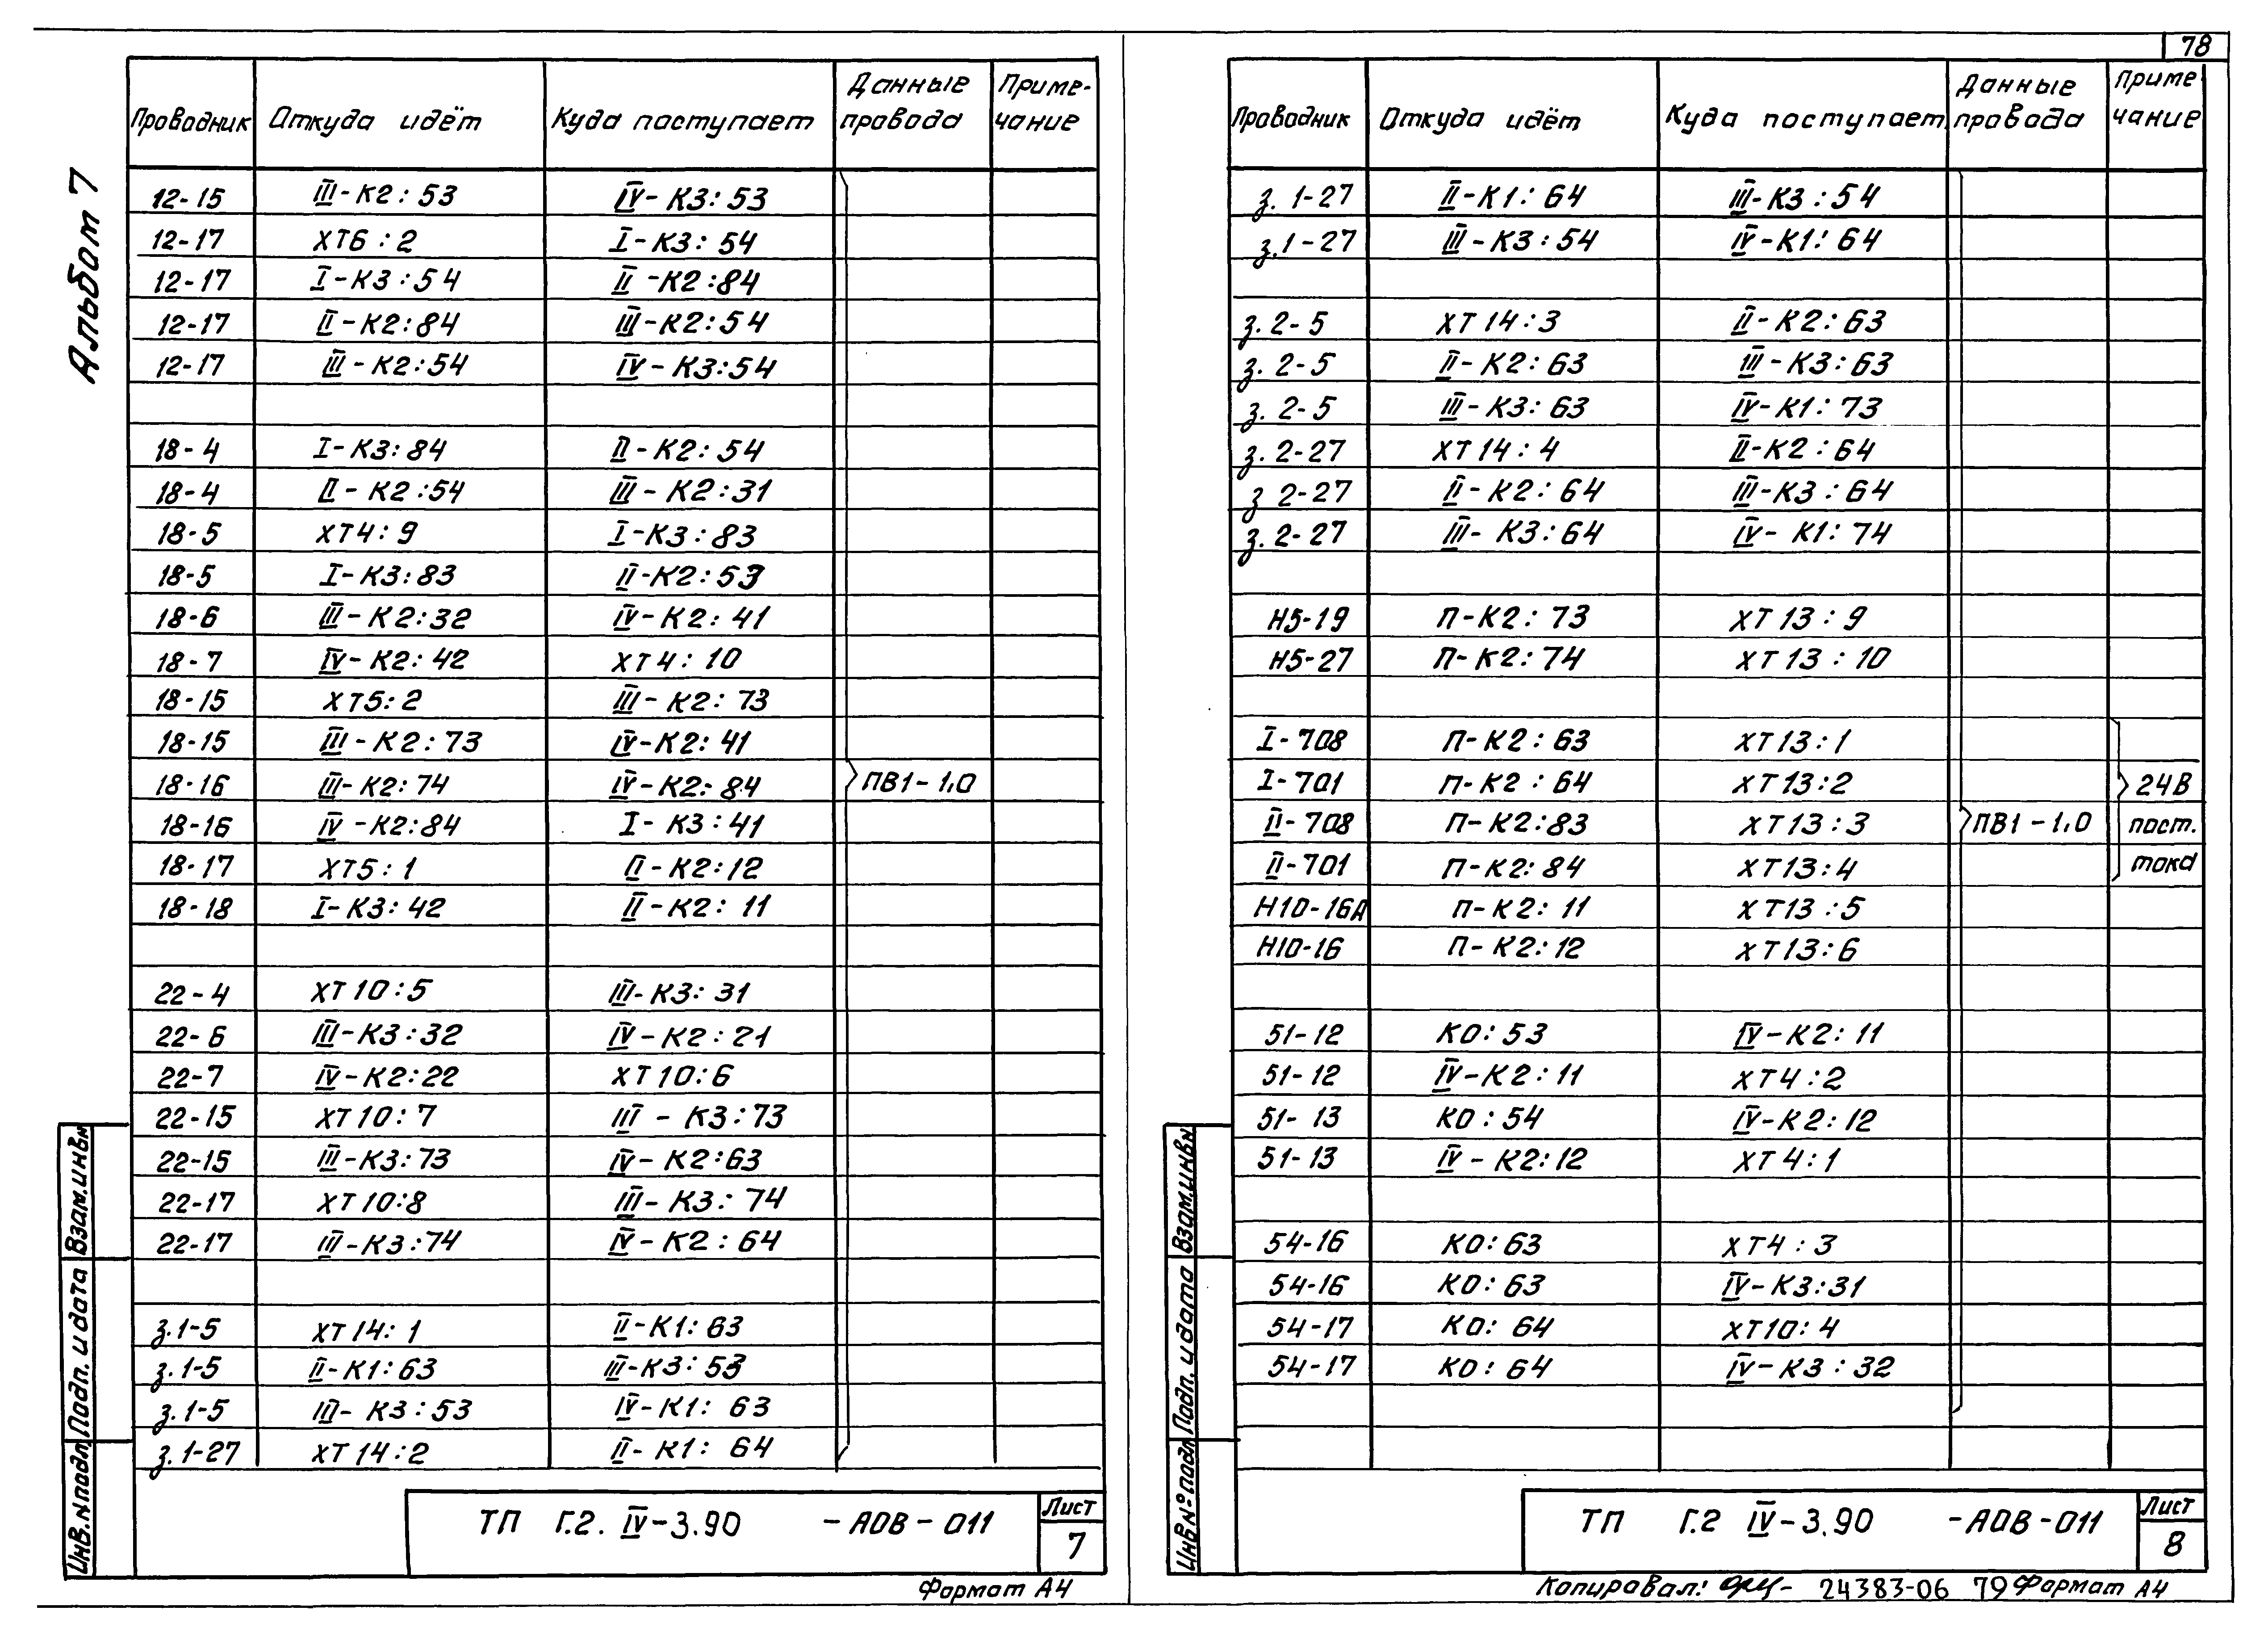 78
Альбом 7
Проводник Откуда идёт Куда поступает Данные провода Примечание
12-15 III-К2:53 IV-К3:53
12-17 ХТ6:2 I-К3:54
12-17 I-К3:54 II-К2:84
12-17 II-К2:84 III-К2:54
12-17 III-К2:54 IV-К3:54
18-4 I-К3:84 II-К2:54
18-4 II-К2:54 III-К2:31
18-5 ХТ4:9 I-К3:83
18-5 I-К3:83 II-К2:53
18-6 III-К2:32 IV-К2:41
18-7 IV-К2:42 ХТ4:10
18-15 ХТ5:2 III-К2:73
18-15 III-К2:73 IV-К2:41
18-16 III-К2:74 IV-К2:84 ПВ1-1,0
18-16 IV-К2:84 I-К3:41
18-17 ХТ5:1 II-К2:12
18-18 I-К3:42 II-К2:11
22-4 ХТ10:5 III-К3:31
22-6 III-К3:32 IV-К2:21
22-7 IV-К2:22 ХТ10:6
22-15 ХТ10:7 III-К3:73
22-15 III-К3:73 IV-К2:63
22-17 ХТ10:8 III-К3:74
22-17 III-К3:74 IV-К2:64
з.1-5 ХТ14:1 II-К1:63
з.1-5 II-К1:63 III-К3:53
з.1-5 III-К3:53 IV-К1:63
з.1-27 ХТ14:2 II-К1:64
Взам.инв.н
Подп. и дата
Инв.N подл
ТП Г.2. IV-3.90 -АОВ-011
Лист
7
Формат А4
Проводник Откуда идёт Куда поступает Данные провода Примечание
з. 1-27 II-К1:64 III-К3:54
з.1-27 III-К3:54 IV-К1:64
з. 2-5 ХТ14:3 II-К2:63
з. 2-5 II-К2:63 III-К3:63
з. 2-5 III-К3:63 IV-К1:73
з. 2-27 ХТ14:4 II-К2:64
з 2-27 II-К2:64 III-К3:64
з. 2-27 III-К3:64 IV-К1:74
Н5-19 П-К2:73 ХТ13:9
Н5-27 П-К2:74 ХТ13:10
I-708 П-К2:63 ХТ13:1
I-701 П-К2:64 ХТ13:2 24В
II-708 П-К2:83 ХТ13:3 ПВ1-1,0 пост.
II-701 П-К2:84 ХТ13:4 тока
Н10-16А П-К2:11 ХТ13:5
Н10-16 П-К2:12 ХТ13:6
51-12 К0:53 IV-К2:11
51-12 IV-К2:11 ХТ4:2
51-13 К0:54 IV-К2:12
51-13 IV-К2:12 ХТ4:1
54-16 К0:63 ХТ4:3
54-16 К0:63 IV-К3:31
54-17 К0:64 ХТ10:4
54-17 К0:64 IV-К3:32
Взам.инв.н
Подп. и дата
Инв.№ подл
ТП Г.2 IV-3.90 -АОВ-011
Лист
8
Копировал: 24383-06 79 Формат А4